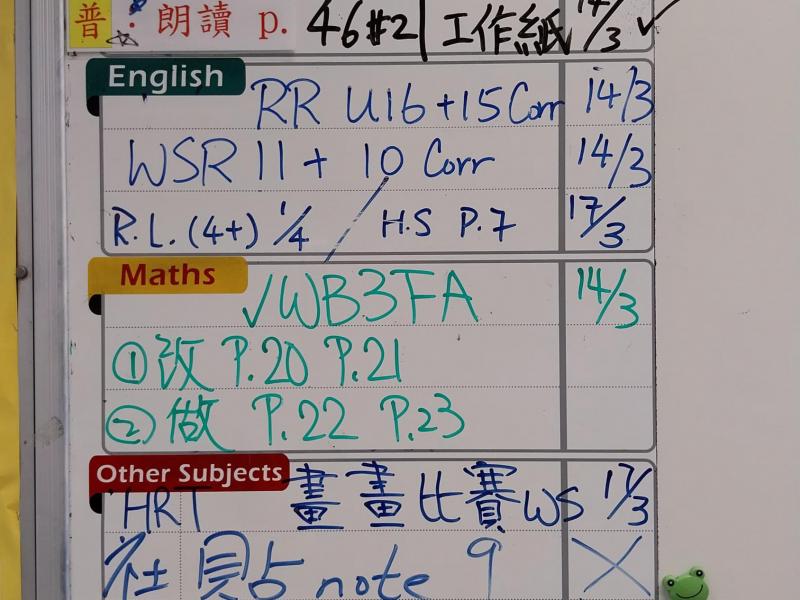 普：朗讀 p. 46#2 | 工作紙 14/3 ✓
English
RR U16+15 Corr 14/3
WSR 11 + 10 Corr 14/3
R.L. (4+) 1/4 / H.S P.7 17/3
Maths
✓WB3FA 14/3
①改 P.20 P.21
②做 P.22 P.23
Other Subjects
HRT 畫畫比賽WS 17/3
社 貼 note 9 X